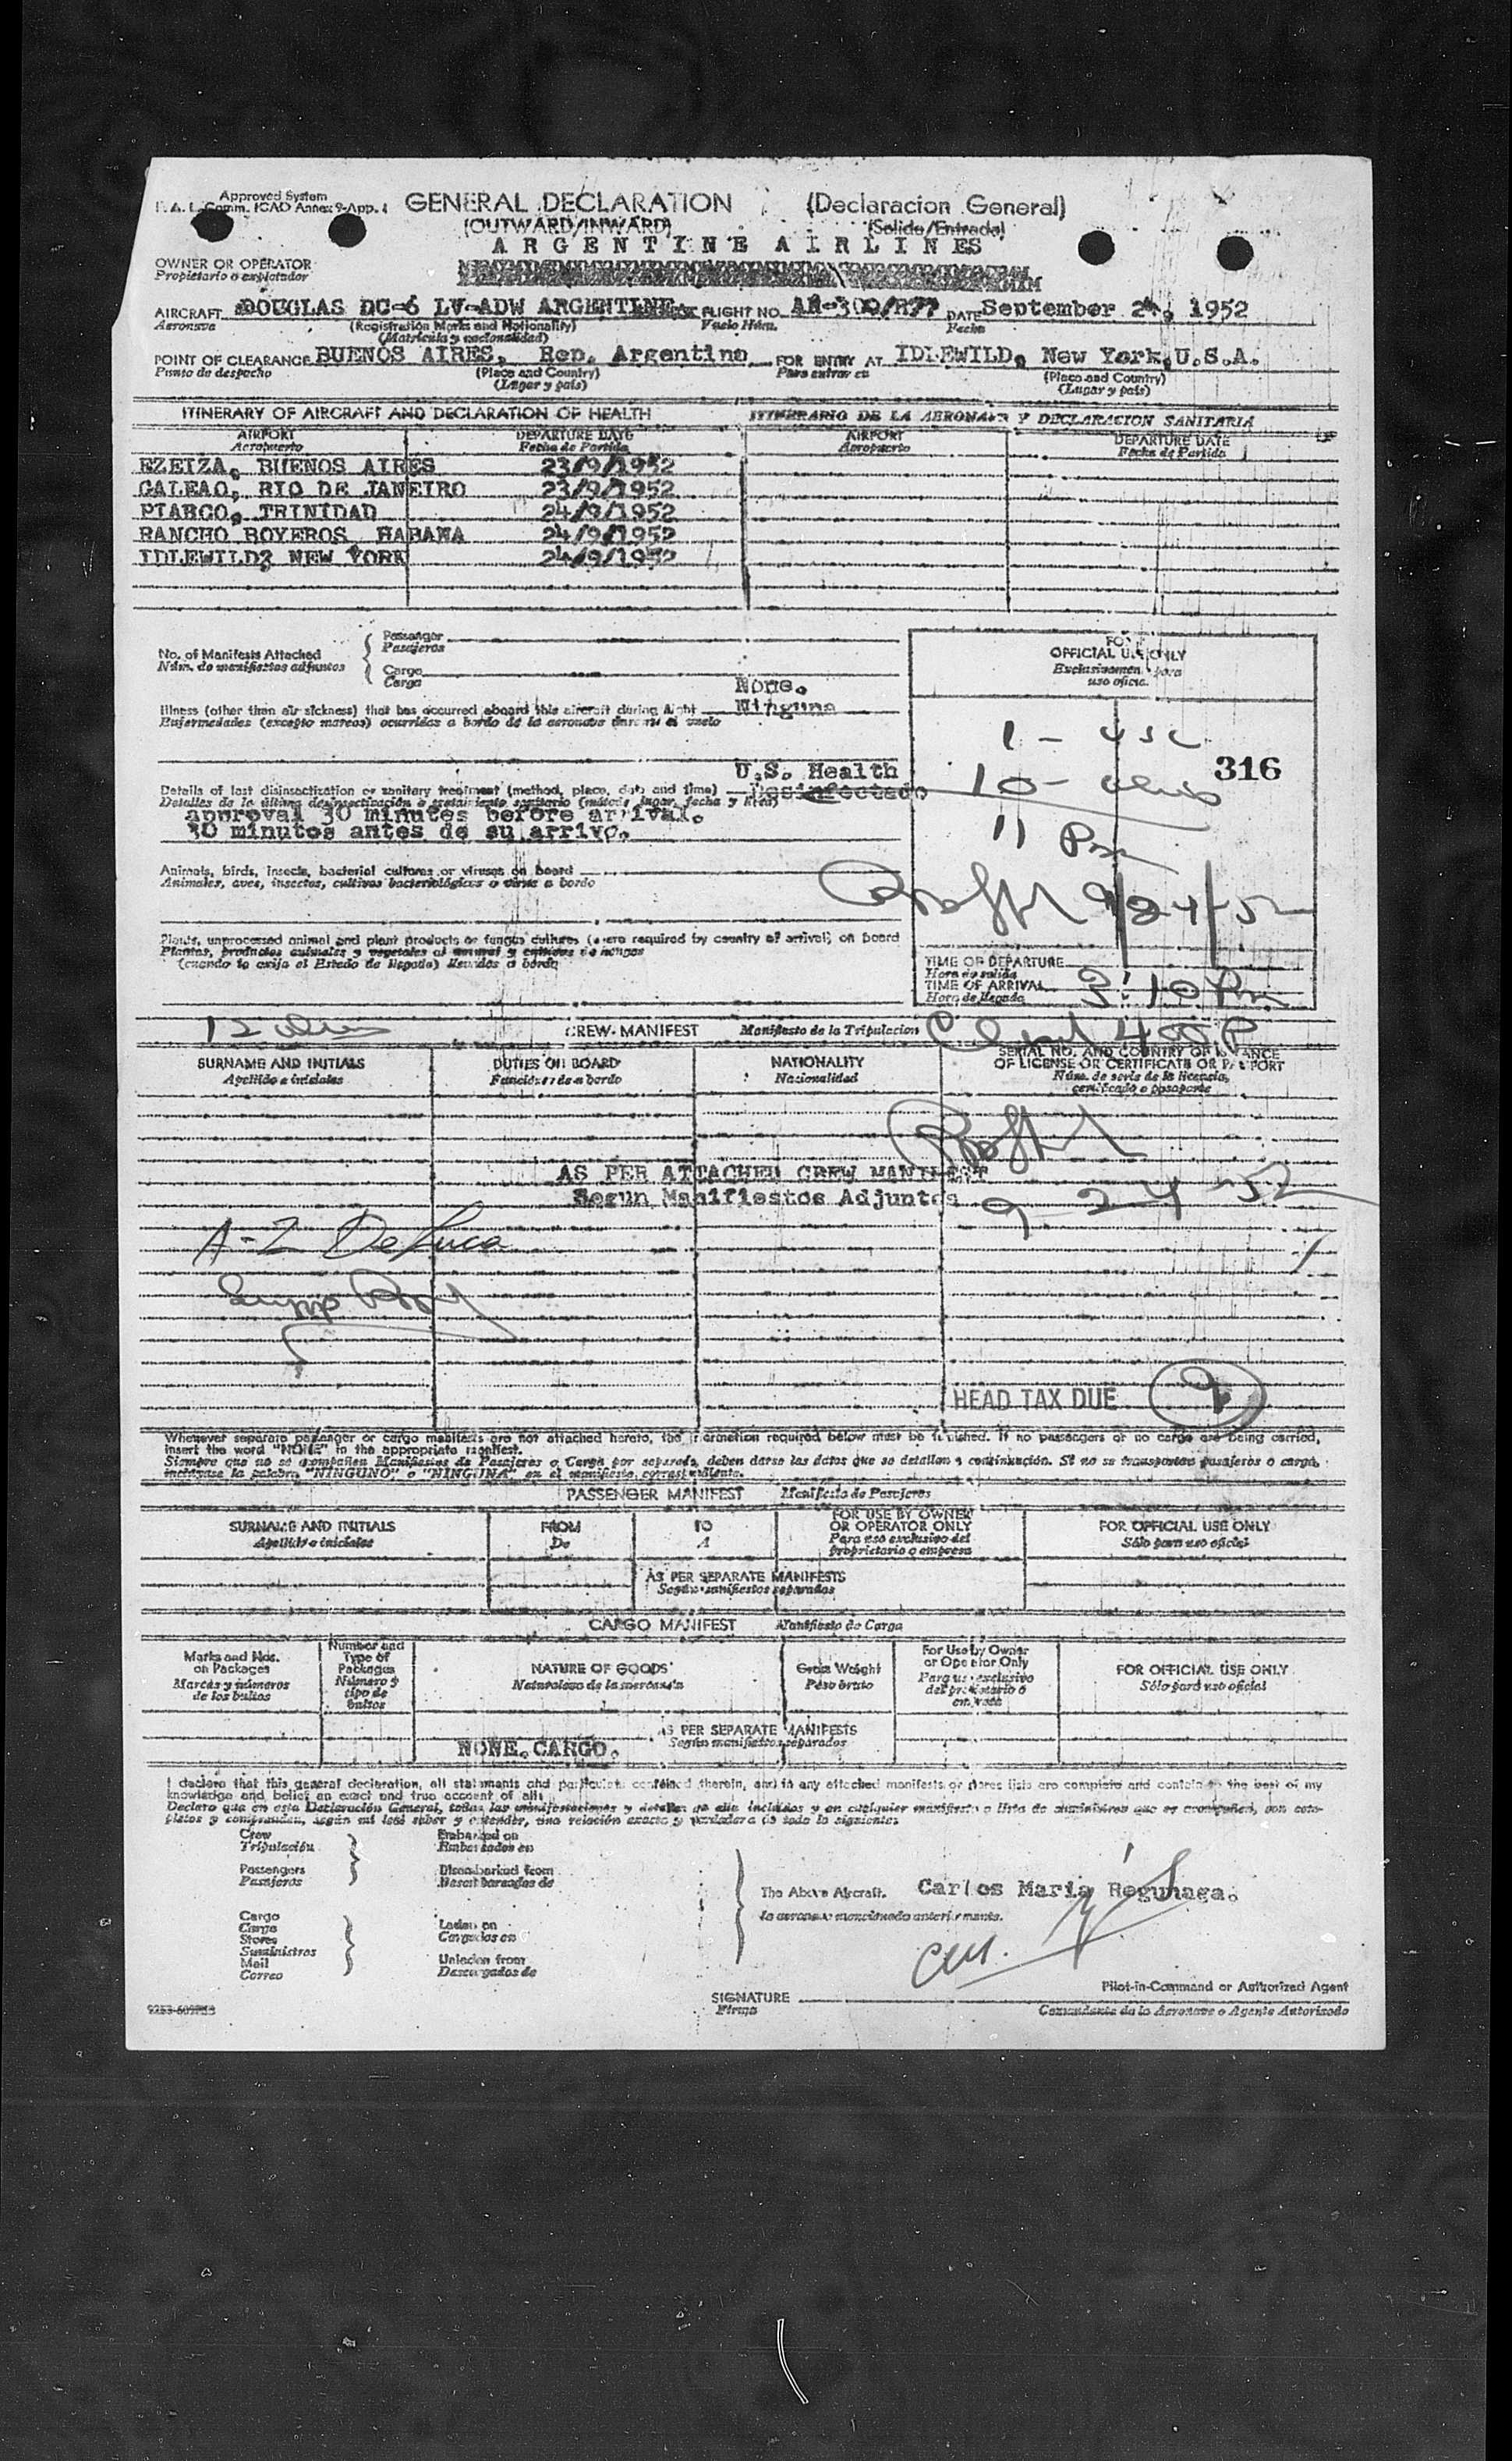 Approved System
F. A. L. Comm. ICAO Annex 9-App. 1
GENERAL DECLARATION (Declaracion General)
(OUTWARD/INWARD) (Salida/Entrada)
ARGENTINE AIRLINES
OWNER OR OPERATOR
Propietario o explotador
AIRCRAFT DOUGLAS DC-6 LV-ADW ARGENTINE FLIGHT NO. AR-300/R77 DATE September 24, 1952
Aeronave (Registration Marks and Nationality) Vuelo Núm. Fecha
(Matrícula y nacionalidad)
POINT OF CLEARANCE BUENOS AIRES, Rep. Argentino FOR ENTRY AT IDLEWILD, New York, U.S.A.
Punto de despacho (Place and Country) Para entrar en (Place and Country)
(Lugar y país) (Lugar y país)
ITINERARY OF AIRCRAFT AND DECLARATION OF HEALTH ITINERARIO DE LA AERONAVE Y DECLARACION SANITARIA
AIRPORT DEPARTURE DATE AIRPORT DEPARTURE DATE
Aeropuerto Fecha de Partida Aeropuerto Fecha de Partida
EZEIZA, BUENOS AIRES 23/9/1952
GALEAO, RIO DE JANEIRO 23/9/1952
PIARCO, TRINIDAD 24/9/1952
RANCHO BOYEROS HABANA 24/9/1952
IDLEWILD, NEW YORK 24/9/1952
No. of Manifests Attached
Núm. de manifiestos adjuntos
Passenger
Pasajeros
Cargo
Carga
FOR
OFFICIAL USE ONLY
Exclusivamente para
uso oficial
None.
Illness (other than air sickness) that has occurred aboard this aircraft during flight Ninguna
Enfermedades (excepto mareos) ocurridas a bordo de la aeronave durante el vuelo
1 - USC
316
10 -
11 Pm
9/24/52
U.S. Health
Details of last disinsectization or sanitary treatment (method, place, date and time) Desinfectado
Detalles de la última desinsectización o tratamiento sanitario (método, lugar, fecha y hora)
approval 30 minutes before arrival.
30 minutos antes de su arrivo.
Animals, birds, insects, bacterial cultures or viruses on board
Animales, aves, insectos, cultivos bacteriológicos o virus a bordo
Plants, unprocessed animal and plant products or fungus cultures (where required by country of arrival) on board
Plantas, productos animales y vegetales al natural y cultivos de hongos
(cuando lo exija el Estado de llegada) llevados a bordo
TIME OF DEPARTURE
Hora de salida
TIME OF ARRIVAL 3:10 Pm
Hora de llegada
12
CREW MANIFEST Manifiesto de la Tripulacion
SURNAME AND INITIALS DUTIES ON BOARD NATIONALITY SERIAL NO. AND COUNTRY OF ISSUANCE
OF LICENSE OR CERTIFICATE OR PASSPORT
Apellido e iniciales Funciones de a bordo Nacionalidad Núm. de serie de la licencia,
certificado o pasaporte
AS PER ATTACHED CREW MANIFEST
Segun Manifiestos Adjuntos
9-24-52
A-Z DeLuca
HEAD TAX DUE
Whenever separate passenger or cargo manifests are not attached hereto, the information required below must be furnished. If no passengers or no cargo are being carried,
insert the word "NONE" in the appropriate manifest.
Siempre que no se acompañen Manifiestos de Pasajeros o Carga por separado, deben darse los datos que se detallan a continuación. Si no se transportan pasajeros o carga,
inclúyase la palabra "NINGUNO" o "NINGUNA" en el manifiesto correspondiente.
PASSENGER MANIFEST Manifiesto de Pasajeros
SURNAME AND INITIALS FROM TO FOR USE BY OWNER
OR OPERATOR ONLY FOR OFFICIAL USE ONLY
Apellido e iniciales De A Para uso exclusivo del
propietario o empresa Sólo para uso oficial
AS PER SEPARATE MANIFESTS
Según manifiestos separados
CARGO MANIFEST Manifiesto de Carga
Marks and Nos.
on Packages
Marcas y números
de los bultos
Number and
Type of
Packages
Número y
tipo de
bultos
NATURE OF GOODS
Naturaleza de la mercancía
Gross Weight
Peso bruto
For Use by Owner
or Operator Only
Para uso exclusivo
del propietario o
empresa
FOR OFFICIAL USE ONLY
Sólo para uso oficial
AS PER SEPARATE MANIFESTS
Según manifiestos separados
NONE CARGO.
I declare that this general declaration, all statements and particulars contained therein, and in any attached manifests or stores lists are complete and contain to the best of my
knowledge and belief an exact and true account of all:
Declaro que en esta Declaración General, todas las manifestaciones y detalles en ella incluidos y en cualquier manifiesto o lista de suministros que se acompañen, son com-
pletos y comprenden, según mi leal saber y entender, una relación exacta y verdadera de todo lo siguiente:
Crew
Tripulación
Passengers
Pasajeros
Embarked on
Embarcados en
Disembarked from
Desembarcados de
Cargo
Carga
Stores
Suministros
Mail
Correo
Laden on
Cargados en
Unladen from
Descargados de
The Above Aircraft. Carlos Maria Regunaga.
la aeronave mencionada anteriormente.
Pilot-in-Command or Authorized Agent
SIGNATURE
Firma Comandante de la Aeronave o Agente Autorizado